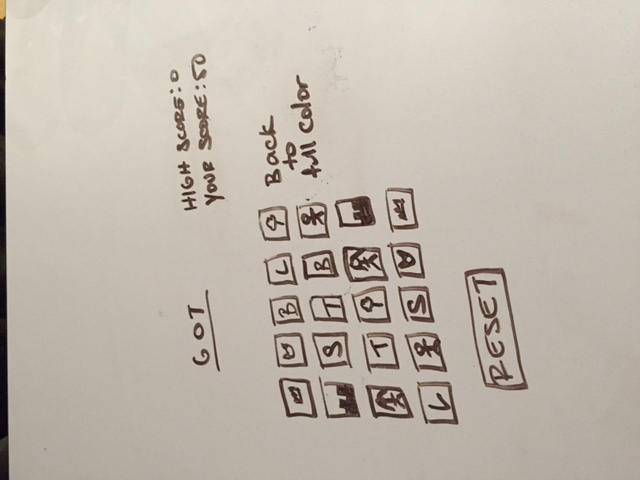 GOT
HIGH SCORE: 0
YOUR SCORE: 50
B L
S T B
T
L S
Back
to
full color
RESET